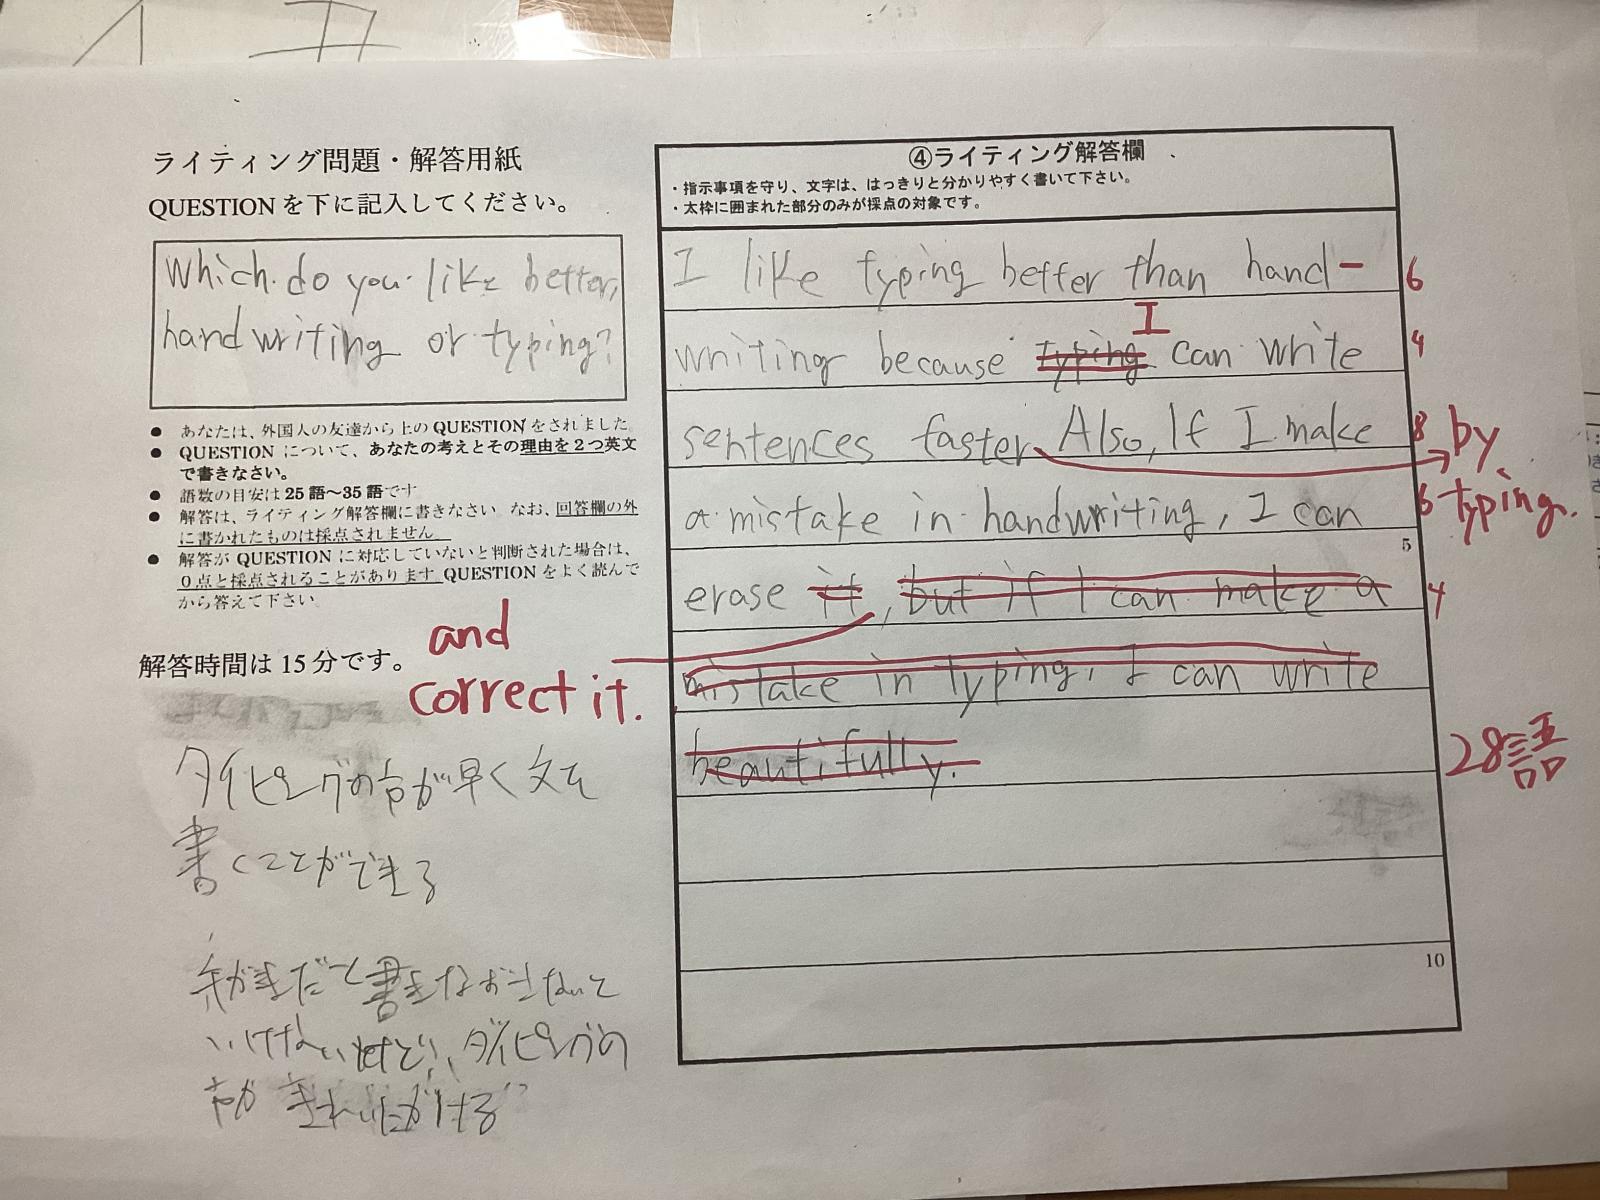 ライティング問題・解答用紙
QUESTION を下に記入してください。
Which do you like better,
handwriting or typing?
● あなたは、外国人の友達から上の QUESTION をされました
● QUESTION について、あなたの考えとその理由を2つ英文
で書きなさい。
● 語数の目安は 25 語～35 語です
● 解答は、ライティング解答欄に書きなさい なお、回答欄の外
に書かれたものは採点されません
● 解答が QUESTION に対応していないと判断された場合は、
0点と採点されることがあります QUESTION をよく読んで
から答えて下さい
解答時間は 15 分です。
and
correct it.
タイピングの方が早く文を
書くことができる
手がきだと書きなおさないと
いけないけど、タイピングの
方が きれいにかける
④ライティング解答欄
・指示事項を守り、文字は、はっきりと分かりやすく書いて下さい。
・太枠に囲まれた部分のみが採点の対象です。
I like typing better than hand- 6
I
writing because typing can write 4
sentences faster Also, If I make 8 by
a mistake in handwriting, I can 6 typing.
5
erase it, but if I can make a 4
mistake in typing, I can write
beautifully. 28語
10